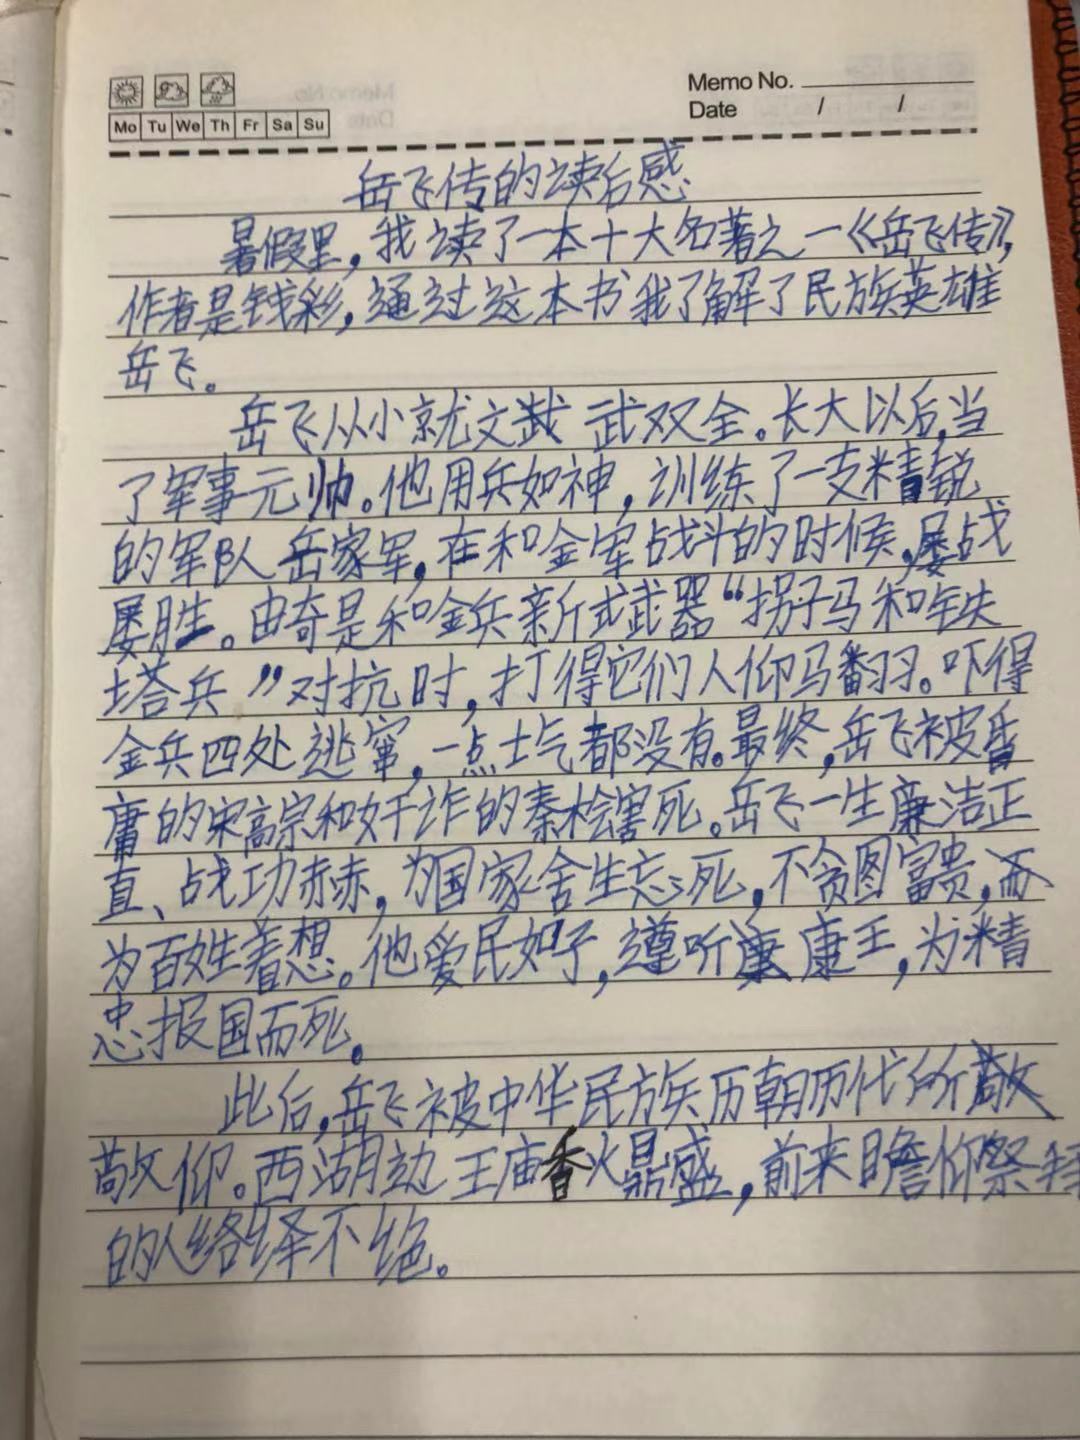 Memo No.
Date / /
Mo Tu We Th Fr Sa Su
岳飞传的读后感
暑假里，我读了一本十大名著之一《岳飞传》，
作者是钱彩，通过这本书我了解了民族英雄
岳飞。
岳飞从小就文武双全。长大以后，当
了军事元帅。他用兵如神，训练了一支精锐
的军队岳家军，在和金军战斗的时候，屡战
屡胜。由奇是和金兵新式武器“拐子马和铁
塔兵”对抗时，打得它们人仰马翻。吓得
金兵四处逃窜，一点士气都没有。最终，岳飞被昏
庸的宋高宗和奸诈的秦桧害死。岳飞一生廉洁正
直、战功赫赫，为国家舍生忘死，不贪图富贵，而
为百姓着想。他爱民如子，遵听康王，为精
忠报国而死。
此后，岳飞被中华民族历朝历代所
敬仰。西湖边王庙香火鼎盛，前来瞻仰祭拜
的人络绎不绝。